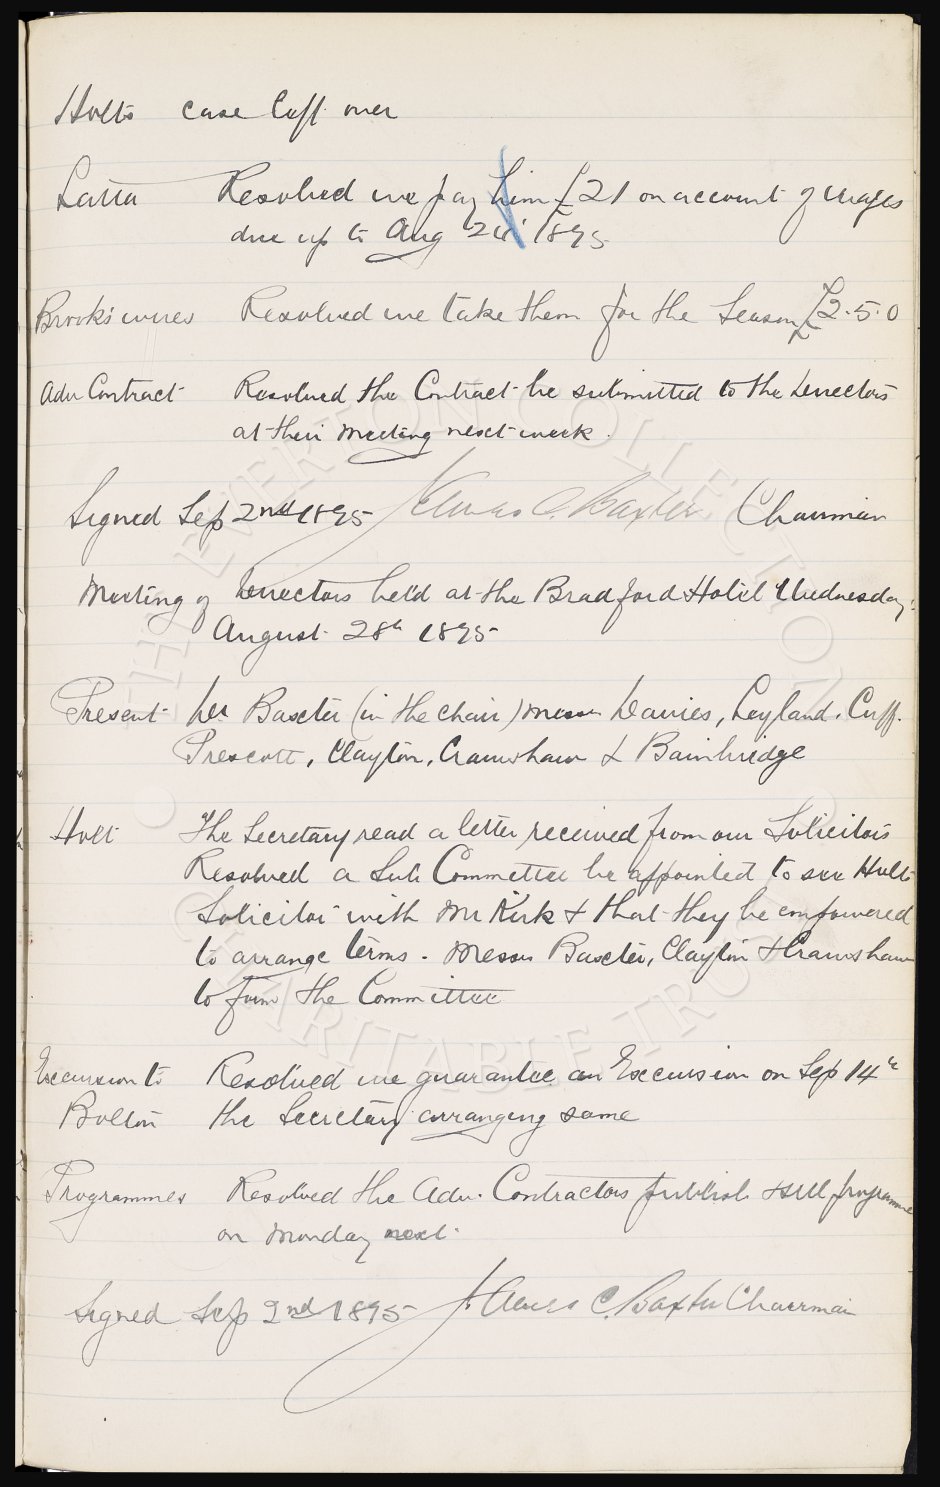 Holts case left over
Latta Resolved we pay him £21 on account of wages
due up to Aug 24 1895
Brook's wires Resolved we take them for the Season £2.5.0
Adv Contract Resolved the Contract be submitted to the Directors
at their meeting next week.
Signed Sep 2nd 1895 James C. Baxter Chairman
Meeting of Directors held at the Bradford Hotel Wednesday
August 28th 1895
Present Dr. Baxter (in the chair) Messrs Davies, Leyland, Cuff.
Prescott, Clayton, Crawshaw & Bainbridge
Holt The Secretary read a letter received from our Solicitors
Resolved a Sub Committee be appointed to see Holts
Solicitor with Mr Kirk & that they be empowered
to arrange terms. Messrs Baxter, Clayton & Crawshaw
to form the Committee
Excursion to Resolved we guarantee an Excursion on Sep 14th
Bolton the Secretary arranging same
Programmes Resolved the Adv. Contractors publish & sell programme
on Monday next.
Signed Sep 2nd 1895 James C. Baxter Chairman
THE EVERTON COLLECTION
CHARITABLE TRUST